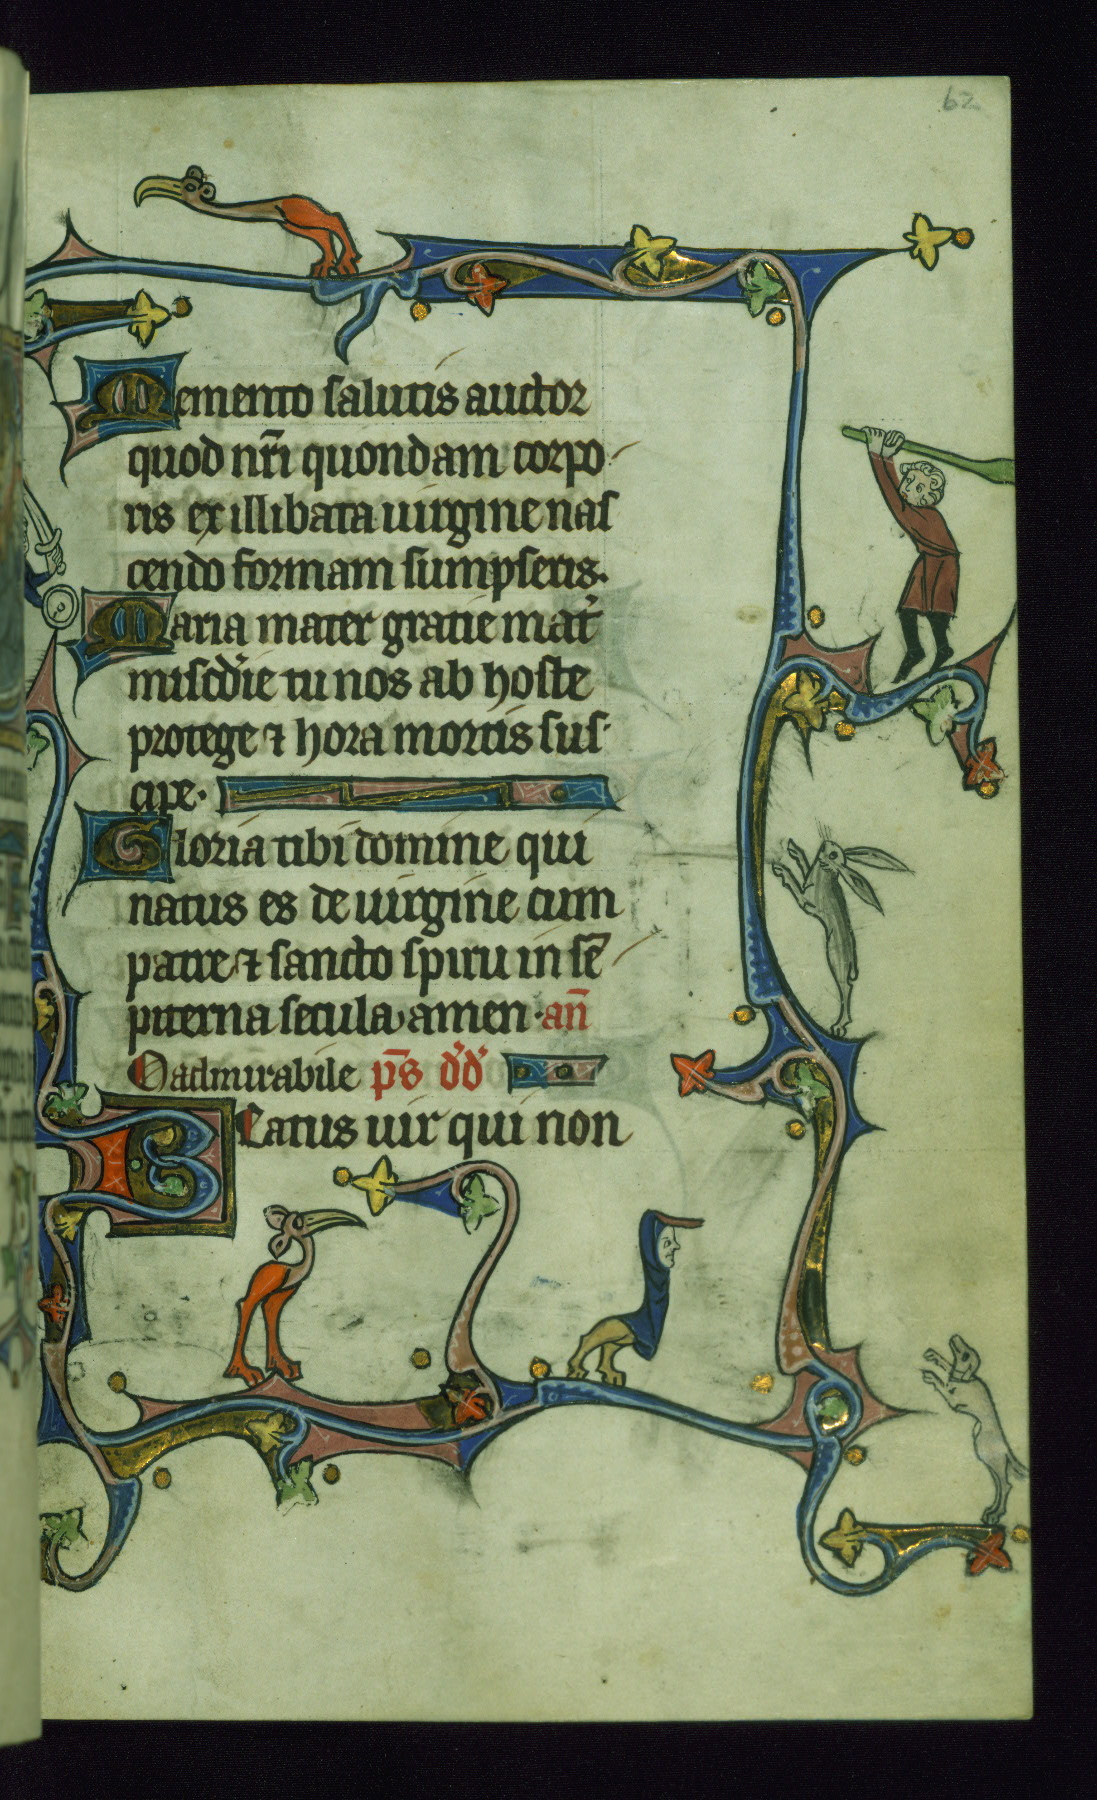 62
Memento salutis auctor
quod nr̄i quondam corpo
ris ex illibata uirgine nas
cendo formam sumpseris.
Maria mater gratie mat̾
misc̾die tu nos ab hoste
protege ⁊ hora mortis sus
cipe.
Gloria tibi domine qui
natus es de uirgine cum
patre ⁊ sancto spiritu in se̅
piterna secula amen. an̅
O admirabile p̅s d̾d̾
Beatus uir qui non